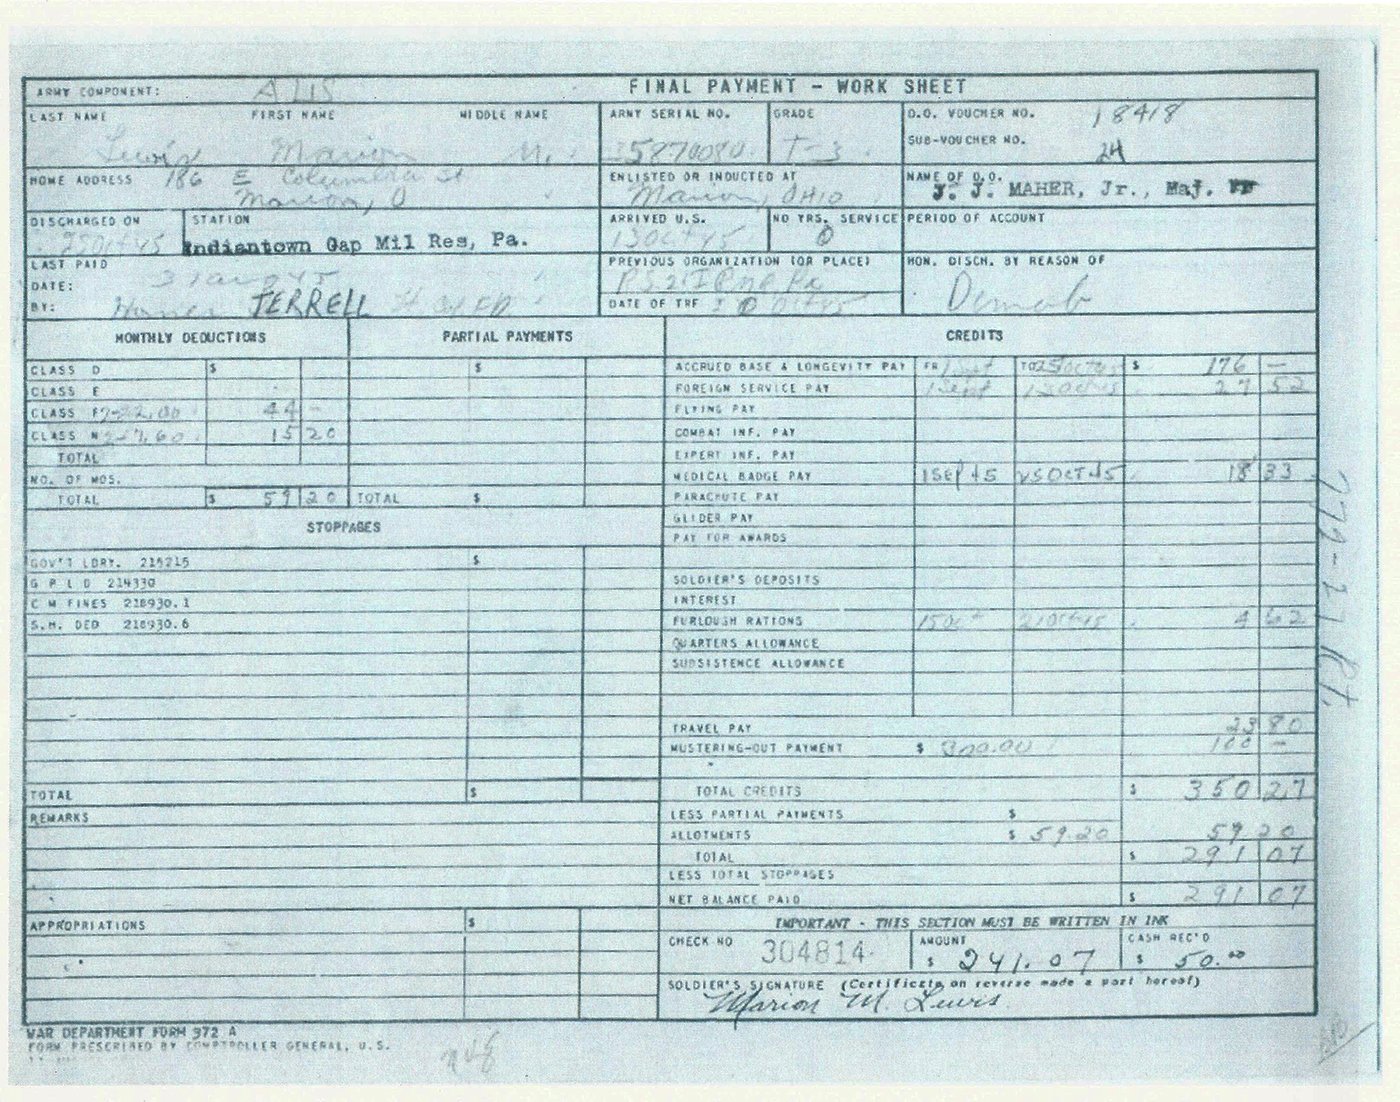 ARMY COMPONENT: AUS FINAL PAYMENT - WORK SHEET
LAST NAME FIRST NAME MIDDLE NAME ARMY SERIAL NO. GRADE D.O. VOUCHER NO. 18418
Lewis Marion M. 35870080 T-3 SUB-VOUCHER NO. 24
HOME ADDRESS 186 E Columbia St ENLISTED OR INDUCTED AT NAME OF D.O.
Marion, O Marion, OHIO J. J. MAHER, Jr., Maj.
DISCHARGED ON STATION ARRIVED U.S. NO YRS. SERVICE PERIOD OF ACCOUNT
25Oct45 Indiantown Gap Mil Res, Pa. 13Oct45 0
LAST PAID PREVIOUS ORGANIZATION (OR PLACE) HON. DISCH. BY REASON OF
DATE: 31aug45 Demob
BY: Homer TERRELL DATE OF TRF Oct45
MONTHLY DEDUCTIONS PARTIAL PAYMENTS CREDITS
CLASS D $ $ ACCRUED BASE & LONGEVITY PAY FR 1Sept TO 25Oct45 $ 176 —
CLASS E FOREIGN SERVICE PAY 1Sept 13Oct45 27 52
CLASS F 2-22.00 44 — FLYING PAY
CLASS N 2-7.60 15 20 COMBAT INF. PAY
TOTAL EXPERT INF. PAY
NO. OF MOS. MEDICAL BADGE PAY 1SEP45 25OCT45 18 33
TOTAL $ 59 20 TOTAL $ PARACHUTE PAY
STOPPAGES GLIDER PAY
PAY FOR AWARDS
GOV'T LDRY. 215215 $
G P L D 214330 SOLDIER'S DEPOSITS
C M FINES 218930.1 INTEREST
S.H. DED 218930.6 FURLOUGH RATIONS 15Oct 21Oct45 4 62
QUARTERS ALLOWANCE
SUBSISTENCE ALLOWANCE
TRAVEL PAY 23 80
MUSTERING-OUT PAYMENT $ 300.00 100 —
TOTAL $ TOTAL CREDITS $ 350 27
REMARKS LESS PARTIAL PAYMENTS $
ALLOTMENTS $ 59.20 59 20
TOTAL $ 291 07
LESS TOTAL STOPPAGES
NET BALANCE PAID $ 291 07
APPROPRIATIONS $ IMPORTANT - THIS SECTION MUST BE WRITTEN IN INK
CHECK NO 304814 AMOUNT $ 241.07 CASH REC'D $ 50.00
SOLDIER'S SIGNATURE (Certificate on reverse made a part hereof)
Marion M. Lewis
WAR DEPARTMENT FORM 372 A
FORM PRESCRIBED BY COMPTROLLER GENERAL, U.S.